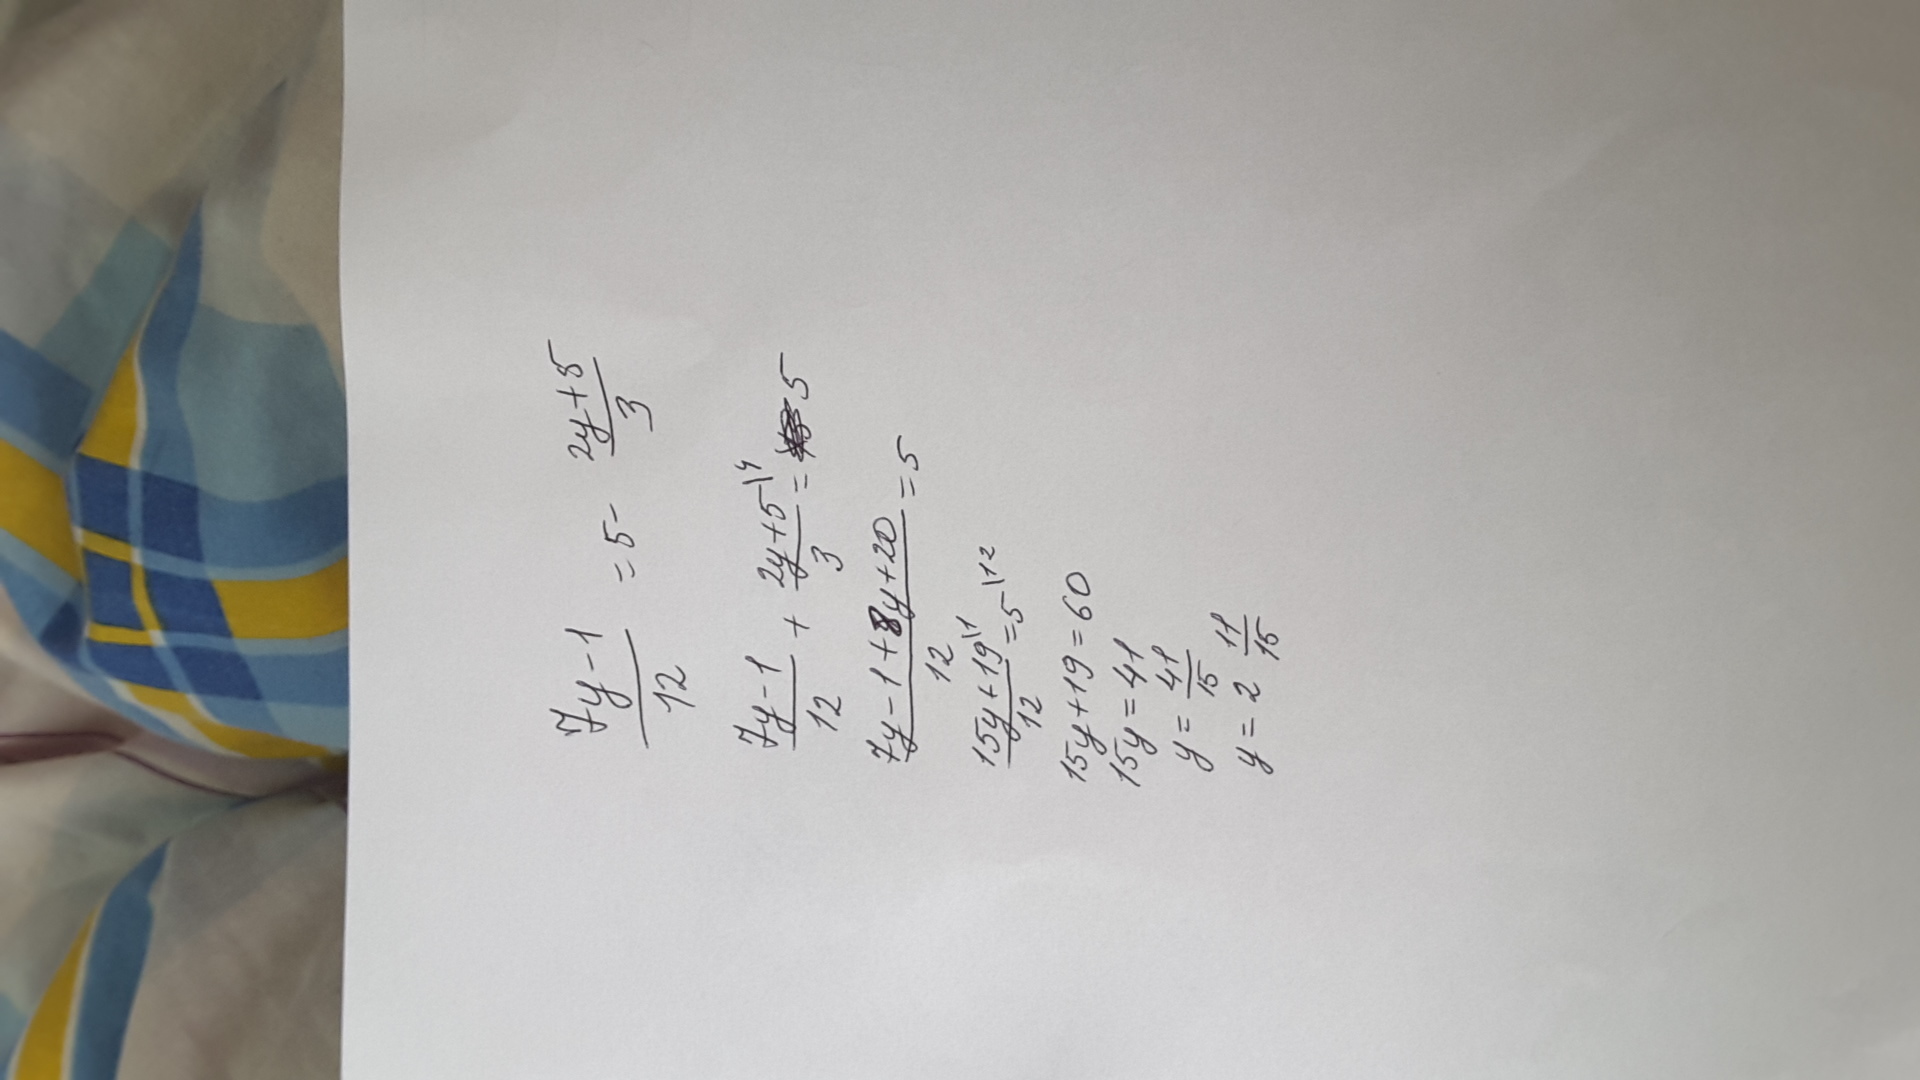 7y-1/12 = 5 - 2y+5/3
7y-1/12 + 2y+5\4/3 = 5
7y-1+8y+20/12 = 5
15y+19\1/12 = 5\12
15y+19=60
15y=41
y=41/15
y=2 11/15